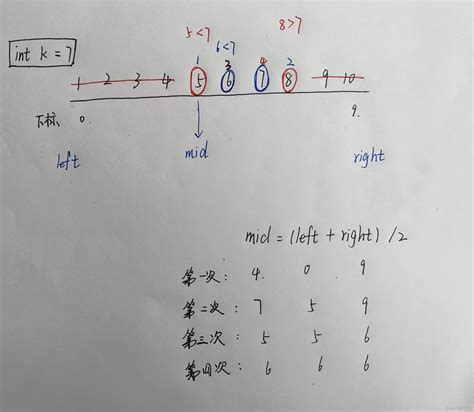 5<7
6<7
8>7
int k = 7
1 3 4 2
1 2 3 4 5 6 7 8 9 10
下标 0. 9.
left mid right
mid = (left + right) /2
第一次: 4. 0 9
第二次: 7 5 9
第三次: 5 5 6
第四次: 6 6 6